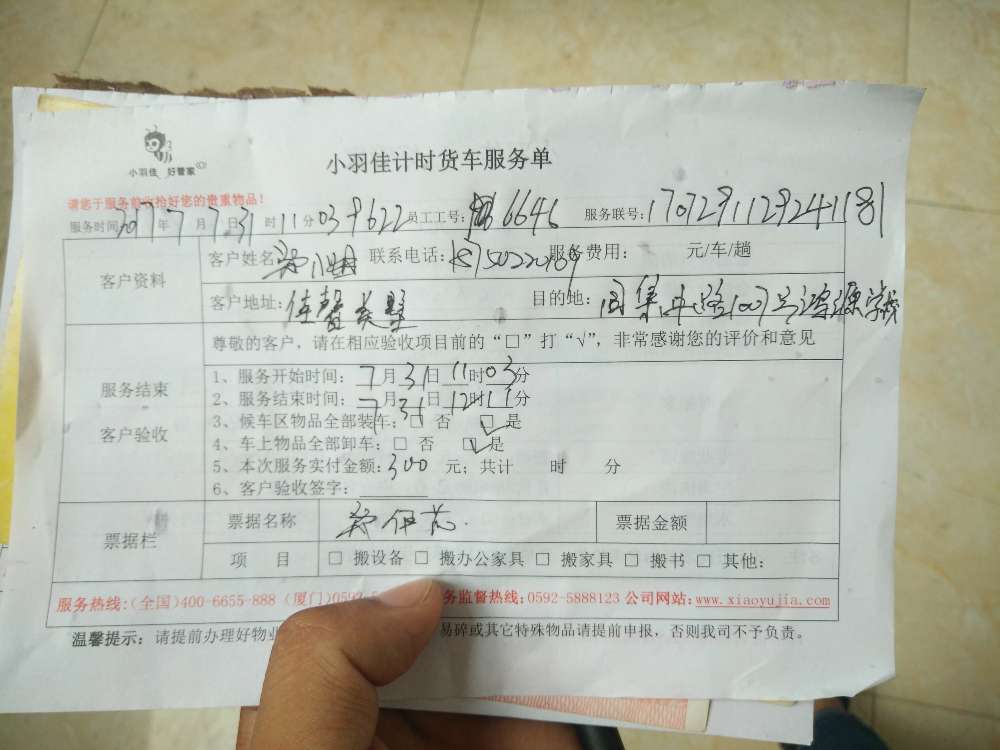 小羽佳 好管家
小羽佳计时货车服务单
请您于服务前收拾好您的贵重物品！
服务时间 2017年7月7.31日 时11分03 员工工号: 6646 服务联号:1707291129241181
客户资料
客户姓名: 联系电话: 服务费用: 元/车/趟
客户地址:佳馨美墅 目的地: 集 路1007号鸿源学校
服务结束
客户验收
尊敬的客户，请在相应验收项目前的“□”打“√”，非常感谢您的评价和意见
1、服务开始时间：7月31日11时03分
2、服务结束时间：7月31日12时11分
3、候车区物品全部装车:□ 否 ☑是
4、车上物品全部卸车:□ 否 ☑是
5、本次服务实付金额:300 元；共计 时 分
6、客户验收签字：
票据栏
票据名称 票据金额
项 目 □ 搬设备 □ 搬办公家具 □ 搬家具 □ 搬书 □ 其他:
服务热线:(全国)400-6655-888 (厦门)0592-5 务监督热线:0592-5888123 公司网站:www.xiaoyujia.com
温馨提示: 请提前办理好物业 易碎或其它特殊物品请提前申报，否则我司不予负责。